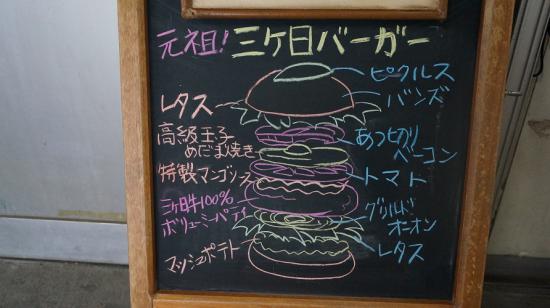 元祖!三ケ日バーガー
ピクルス
バンズ
レタス
高級玉子
めだま焼き
あつぎり
ベーコン
特製マンゴソース
トマト
三ケ日牛100%
ボリューミーパティ
グリルド
オニオン
マッシュポテト
レタス